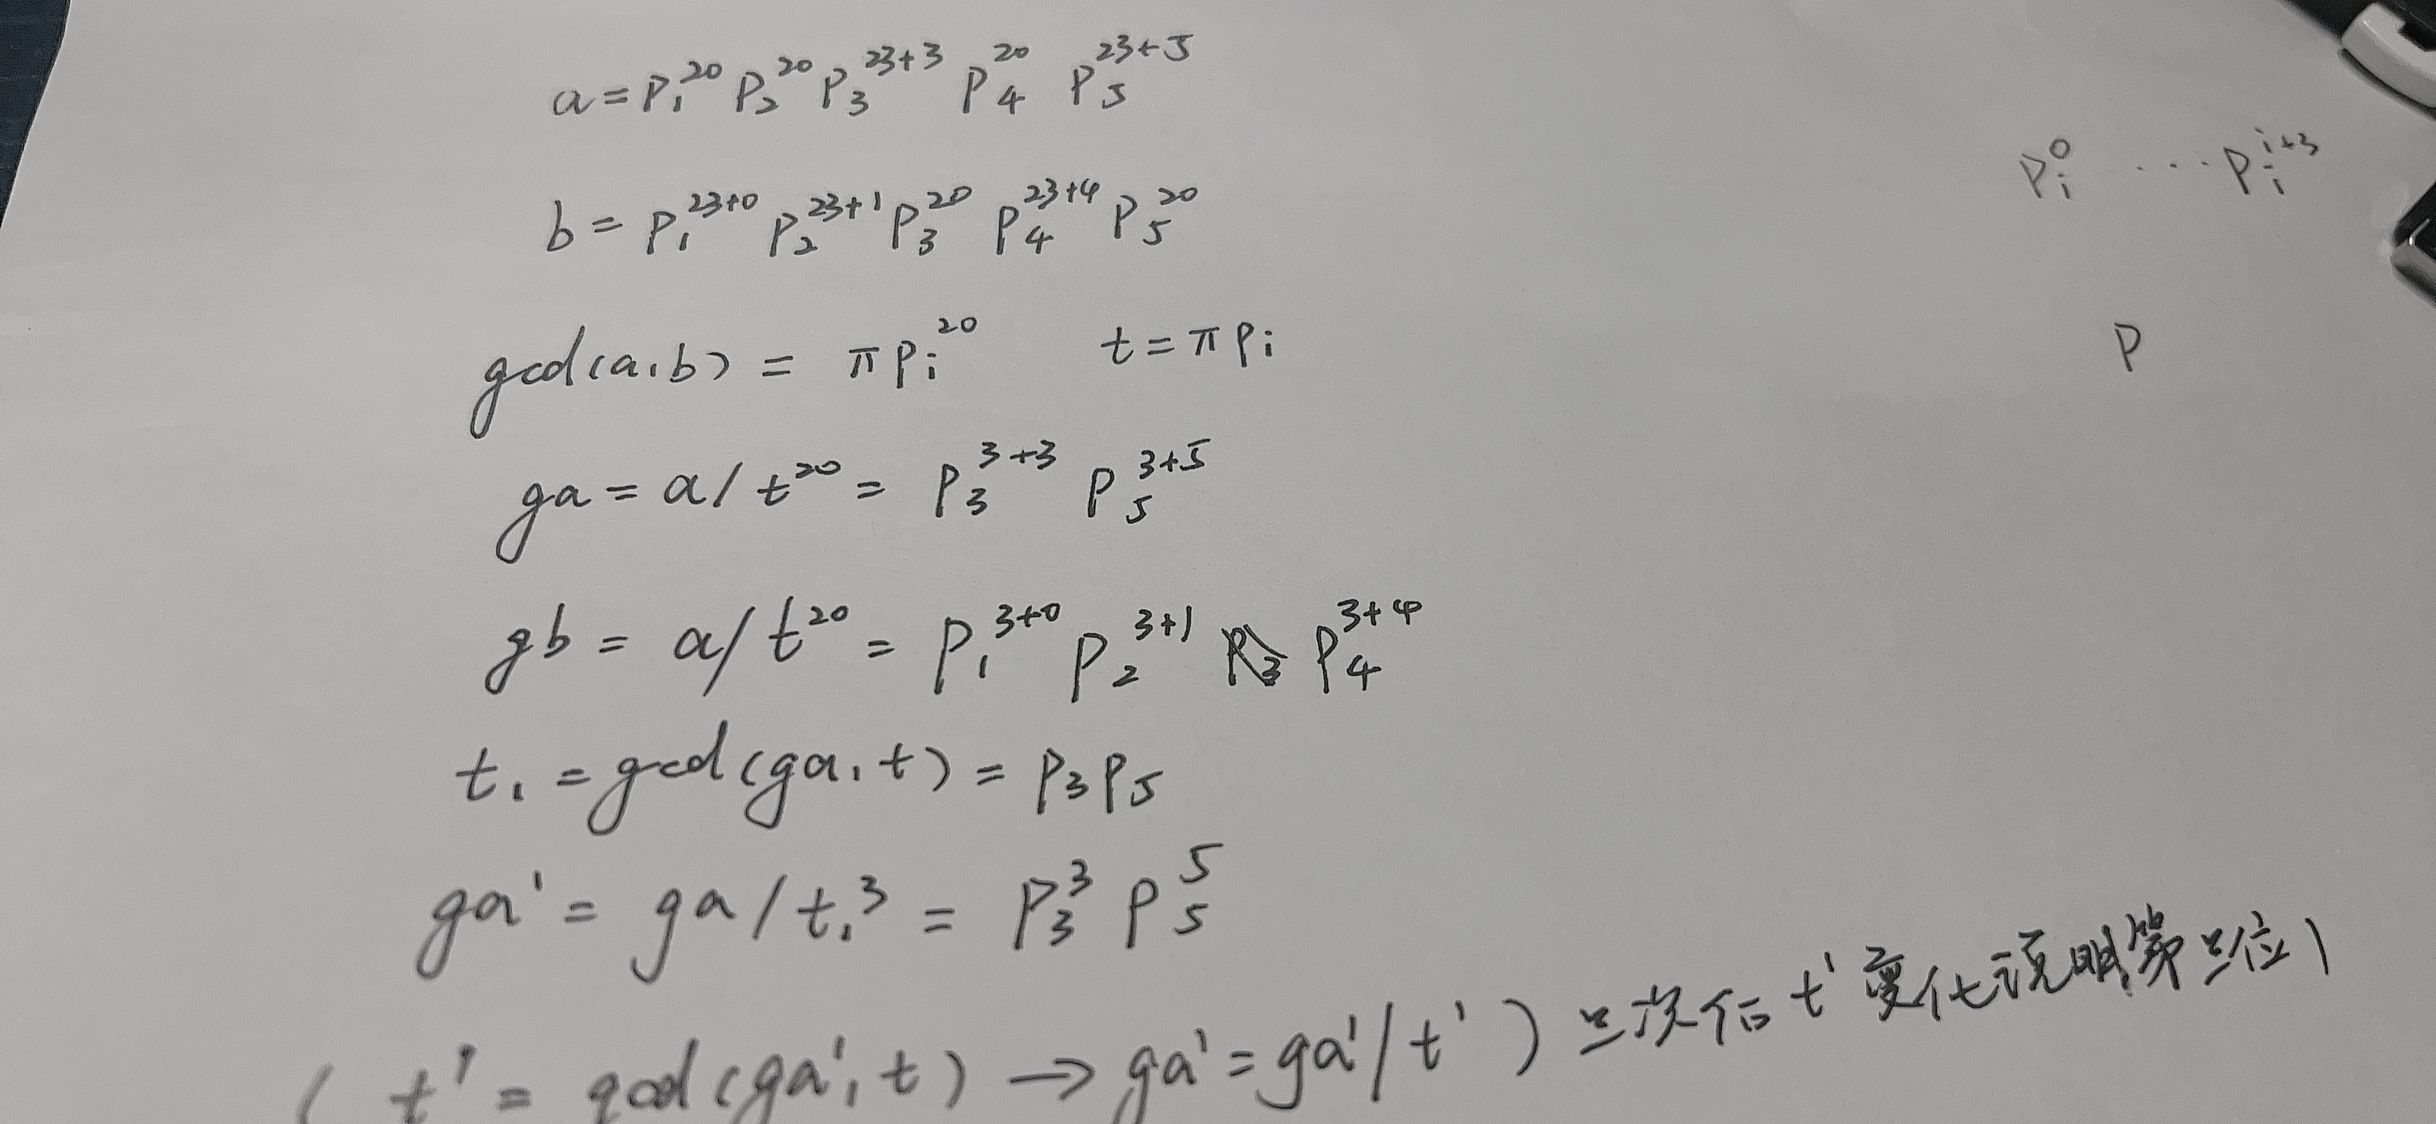 a = P₁²⁰ P₂²⁰ P₃²³⁺³ P₄²⁰ P₅²³⁺⁵
b = P₁²³⁺⁰ P₂²³⁺¹ P₃²⁰ P₄²³⁺⁴ P₅²⁰
Pᵢ⁰ ... Pᵢⁱ⁺³
gcd(a,b) = π Pᵢ²⁰ t = π Pᵢ
P
ga = a/t²⁰ = P₃³⁺³ P₅³⁺⁵
gb = a/t²⁰ = P₁³⁺⁰ P₂³⁺¹ P₄³⁺⁴
t₁ = gcd(ga,t) = P₃P₅
ga' = ga/t₁³ = P₃³ P₅⁵
( t' = gcd(ga',t) → ga' = ga'/t' ) 三次后 t' 变化说明第三位1